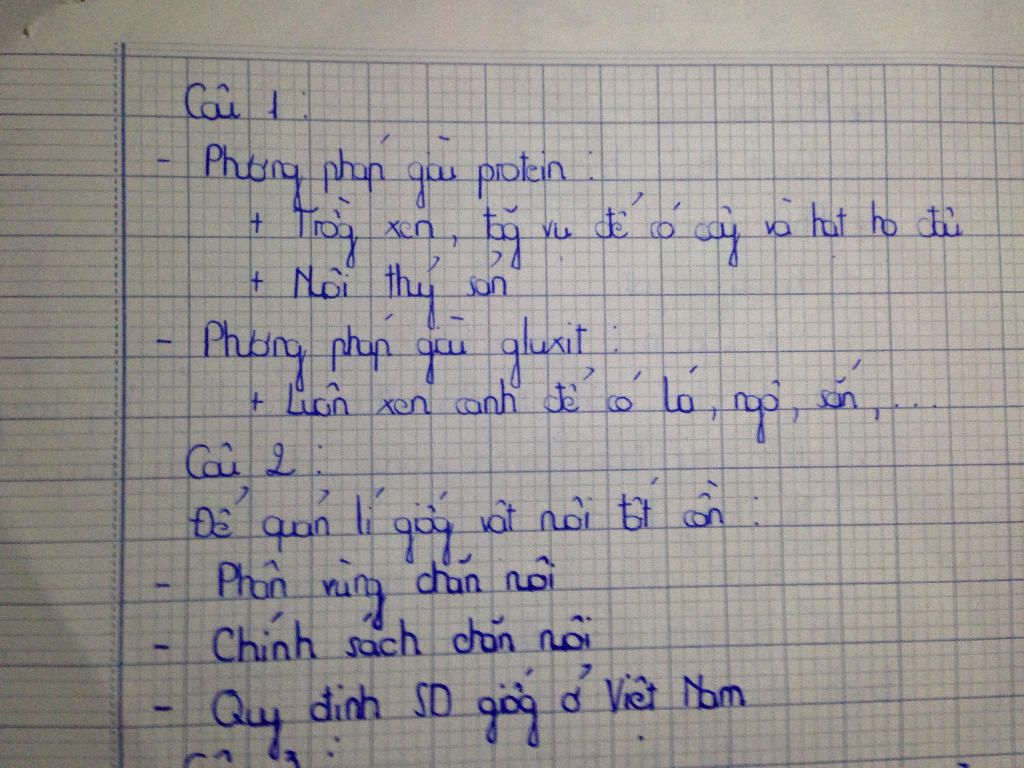 Câu 1 :
- Phương pháp giàu protein :
+ Trồg xen, tăg vụ để có cây và hạt họ đậu
+ Nuôi thuỷ sản
- Phương pháp giàu gluxit :
+ Luân xen canh để có lá, ngô, sắn, ...
Câu 2 :
Để quản lí giốg vật nuôi tốt cần :
- Phân vùng chăn nuôi
- Chính sách chăn nuôi
- Quy định SD giốg ở Việt Nam
Câu 3 :